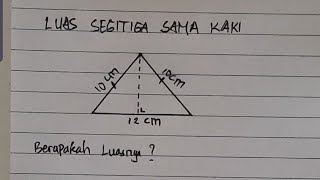 LUAS SEGITIGA SAMA KAKI
10 cm
10cm
12 cm
Berapakah Luasnya ?